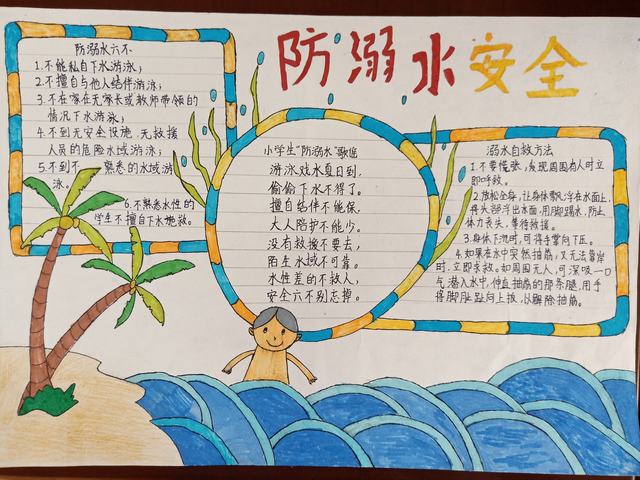 防溺水安全
防溺水六不
1.不能私自下水游泳；
2.不擅自与他人结伴游泳；
3.不在家在无家长或教师带领的
情况下水游泳；
4.不到无安全设施、无救援
人员的危险水域游泳；
5.不到不 熟悉的水域游
泳。
6.不熟悉水性的
学生不擅自下水施救。
小学生"防溺水"歌谣
游泳戏水夏日到，
偷偷下水不得了。
擅自结伴不能保，
大人陪护不能少。
没有救援不要去，
陌生水域不可靠。
水性差的不救人，
安全六不别忘掉。
溺水自救方法
1.不要慌张，发现周围有人时立
即呼救。
2.放松全身，让身体飘浮在水面上，
将头部浮出水面，用脚踢水，防止
体力丧失，等待救援。
3.身体下沉时，可将手掌向下压。
4.如果在水中突然抽筋，又无法靠岸
时，立即求救。如周围无人，可深吸一口
气潜入水中，伸直抽筋的那条腿，用手
将脚趾向上扳，以解除抽筋。